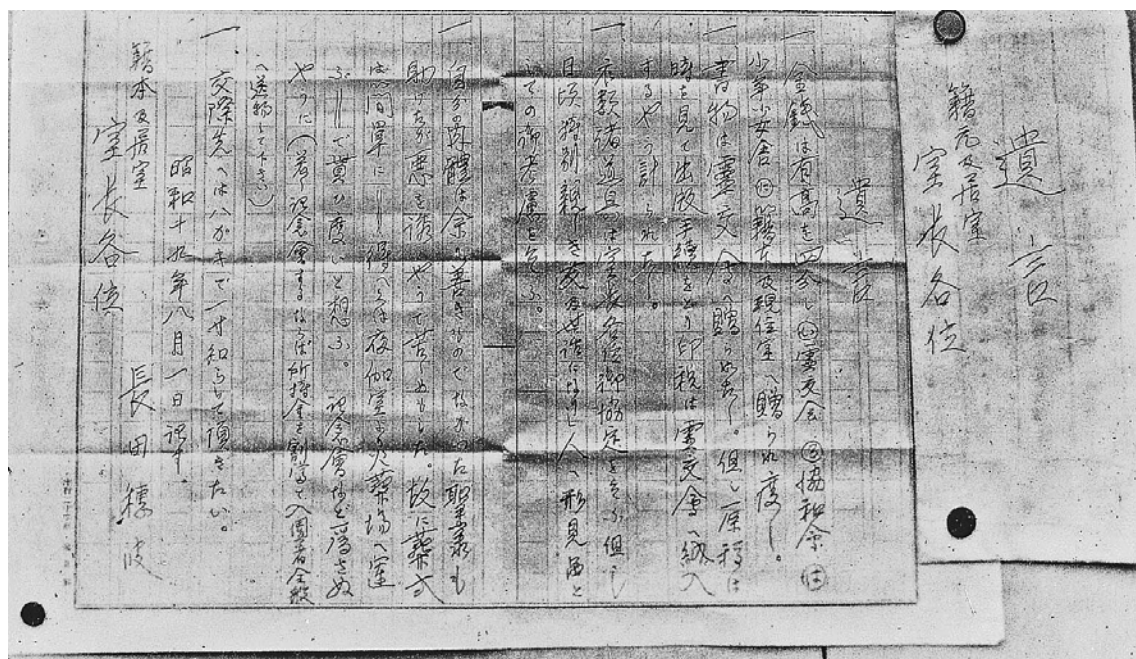 遺言
籍元及居室
室長各位
遺言
一、金銭は有高を四分し㋑霊交会 ㋺協和会 ㋩
少年少女舎 ㋥籍元及現住室へ贈られ度し。
一、書物は霊交会へ贈られたし。但し原稿は
時を見て出版手続をとり印税は霊交會へ納入
するやう計られたし。
一、衣類諸道具は室長各位御協定を乞ふ但し
日頃特別親しき友及世話になりし人へ形見分と
しての御考慮を乞ふ。
一、自分の肉體は余り善きものでなかった聖業も
助けたが悪を誘いやうで苦しめもした。故に葬式
は簡単にし得べくは夜伽室より火葬場へ運
ぶ――で貰ひ度いと想ふ。記念會など為さぬ
やうに（若し記念會するならば所持金を割いて入園者全般
へ送物して下さい）
一、交際先へはハガキで一寸知らせて頂きたい。
昭和十九年八月一日認す。
長田穂波
籍本及居室
室長各位